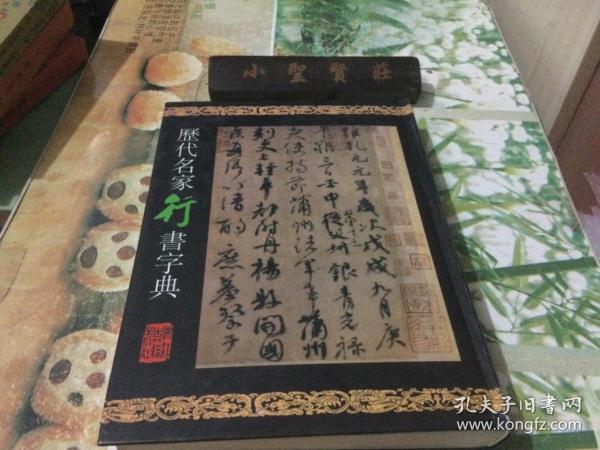 小聖賢莊
歷代名家行書字典
維乾元元年歲次戊戌九月庚
三日壬申
第十三
銀青光祿
夫使持節蒲州諸軍事蒲州
刺史上輕車都尉丹楊縣開國
以清酌庶羞祭于
孔夫子旧书网
www.kongfz.com